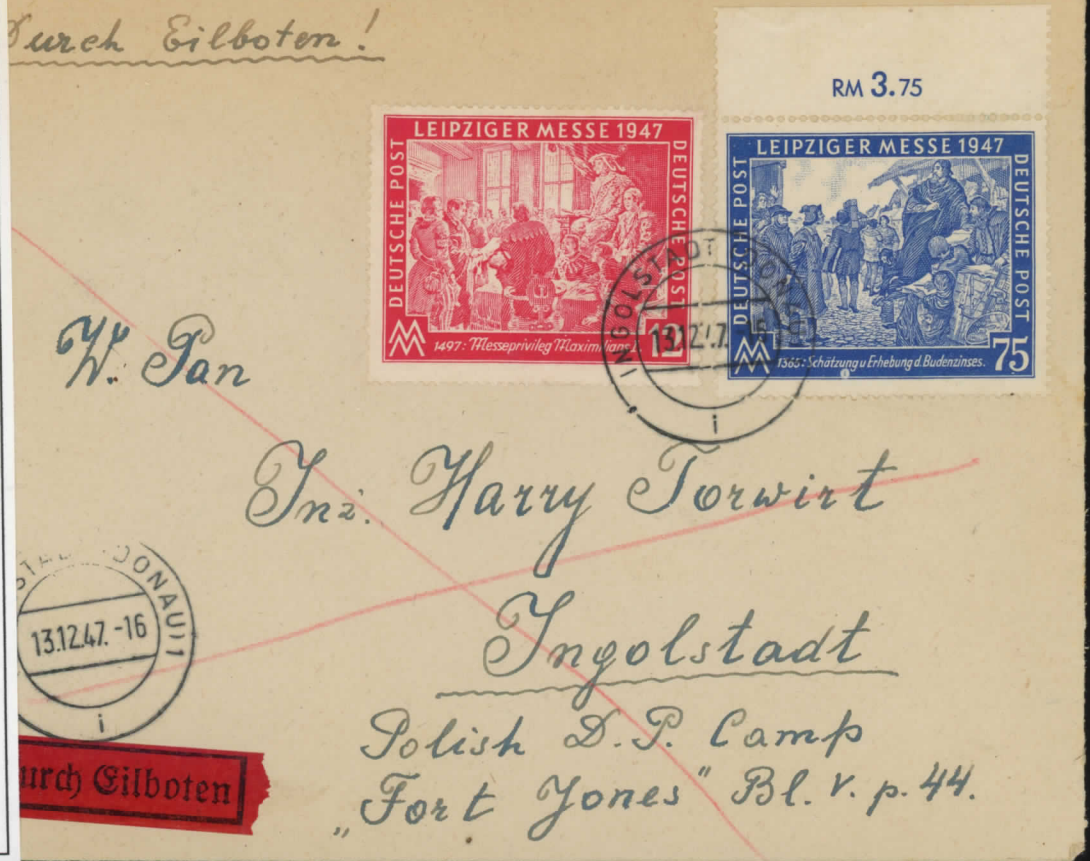 Durch Eilboten!
RM 3.75
LEIPZIGER MESSE 1947
DEUTSCHE POST
DEUTSCHE POST
12
1497: Messeprivileg Maximilians I.
LEIPZIGER MESSE 1947
DEUTSCHE POST
DEUTSCHE POST
75
1365: Schätzung u Erhebung d. Budenzinses.
INGOLSTADT (DONAU) 1
13.12.47.-16
i
W. Pan
Inż. Harry Torwirt
Ingolstadt
Polish D.P. Camp
„Fort Jones" Bl. V. p. 44.
DONAU) 1
13.12.47.-16
i
urch Eilboten